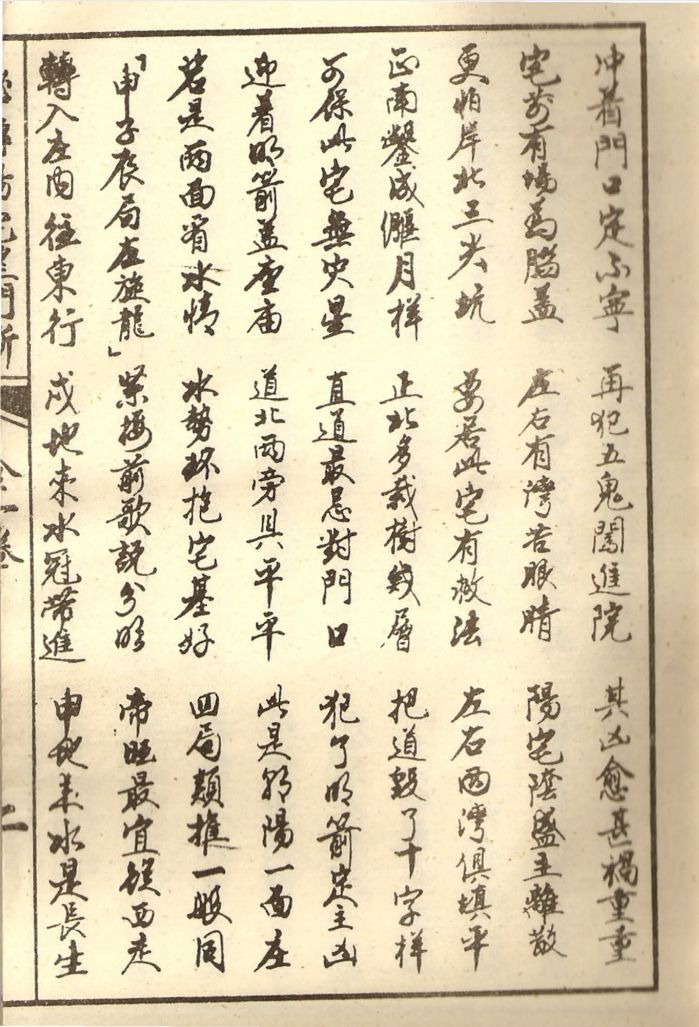 冲着門口定不寧 再犯五鬼闖進院 其凶愈甚禍重重
宅前有塲為腦蓋 左右有灣苦眼睛 陽宅陰盛主離散
更怕岸北三尖坑 要若此宅有救法 左右両灣俱填平
正南鑿成偃月样 正北多栽樹幾層 把道毀了十字样
可保此宅無灾星 直道最忌對門口 犯了明箭定主凶
迎着明箭盖座庙 道北両旁具平平 此是朝陽一面庄
若是両面省水情 水勢环抱宅基好 四局類推一般同
「申子辰局左旋龍」 紧接前歌説分明 帝旺最宜候西走
轉入庄内往東行 戌地来水冠帶進 申地来水是長生
二